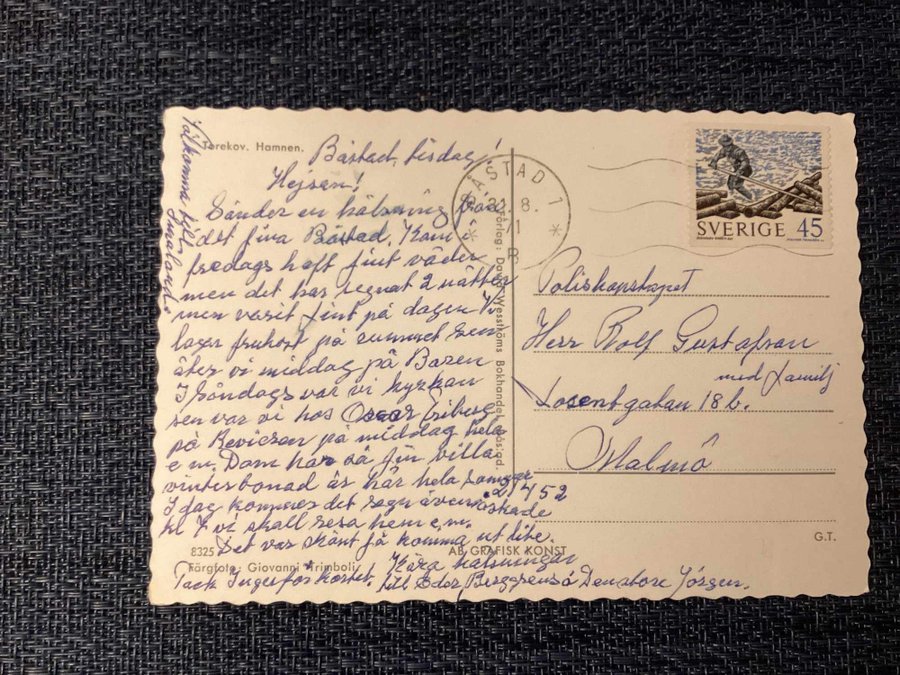 Torekov. Hamnen.
Båstad, tisdag!
Hejsan!
Sänder en hälsning från
det fina Båstad. Kom i
fredags haft fint väder
men det har regnat 2 nätter
men varit fint på dagen Vi
lagar frukost på rummet sen
äter vi middag på Baren
I Söndags var vi kyrkan
sen var vi hos Oscar
på på middag hela
e m. Dom har så fin villa
vinterbonad är här hela
I dag kommer det regn även åskade
kl 7 vi skall resa hem e.m.
Det var skönt få komma ut lite.
Kära hälsningar
till Eder Berggrens å Jörgen.
Tack Inger för kortet.
Välkomna till
Småland.
8325
Färgfoto: Giovanni Trimboli
AB GRAFISK KONST
Förlag: David Wesströms Bokhandel
BÅSTAD 1
8.
71
B
SVERIGE 45
Poliskonstapel
Herr Rolf Gustafson
med familj
18 b.
Malmö
21452
G.T.